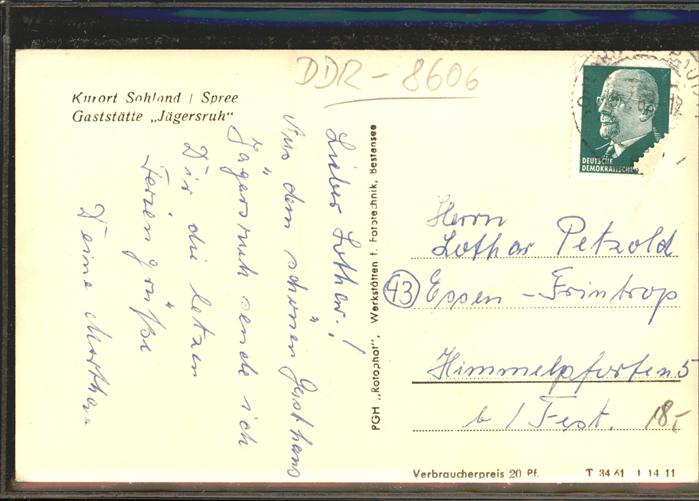 DDR-8606
Kurort Sohland / Spree
Gaststätte „Jägersruh“
Lieber Lothar.!
Aus dem schönen Gasthaus
Jägersruh sende ich
Dir die letzen
Feriengrüße
Deine Martha.
PGH „Rotophot“, Werkstätten f. Fototechnik, Bestensee
DEUTSCHE
DEMOKRATISCHE
Herrn
Lothar Petzold
43 Essen - Frintrop
Himmelpforten 5
b / Fest.
18,-
Verbraucherpreis 20 Pf.
T 34 61 1 14 11